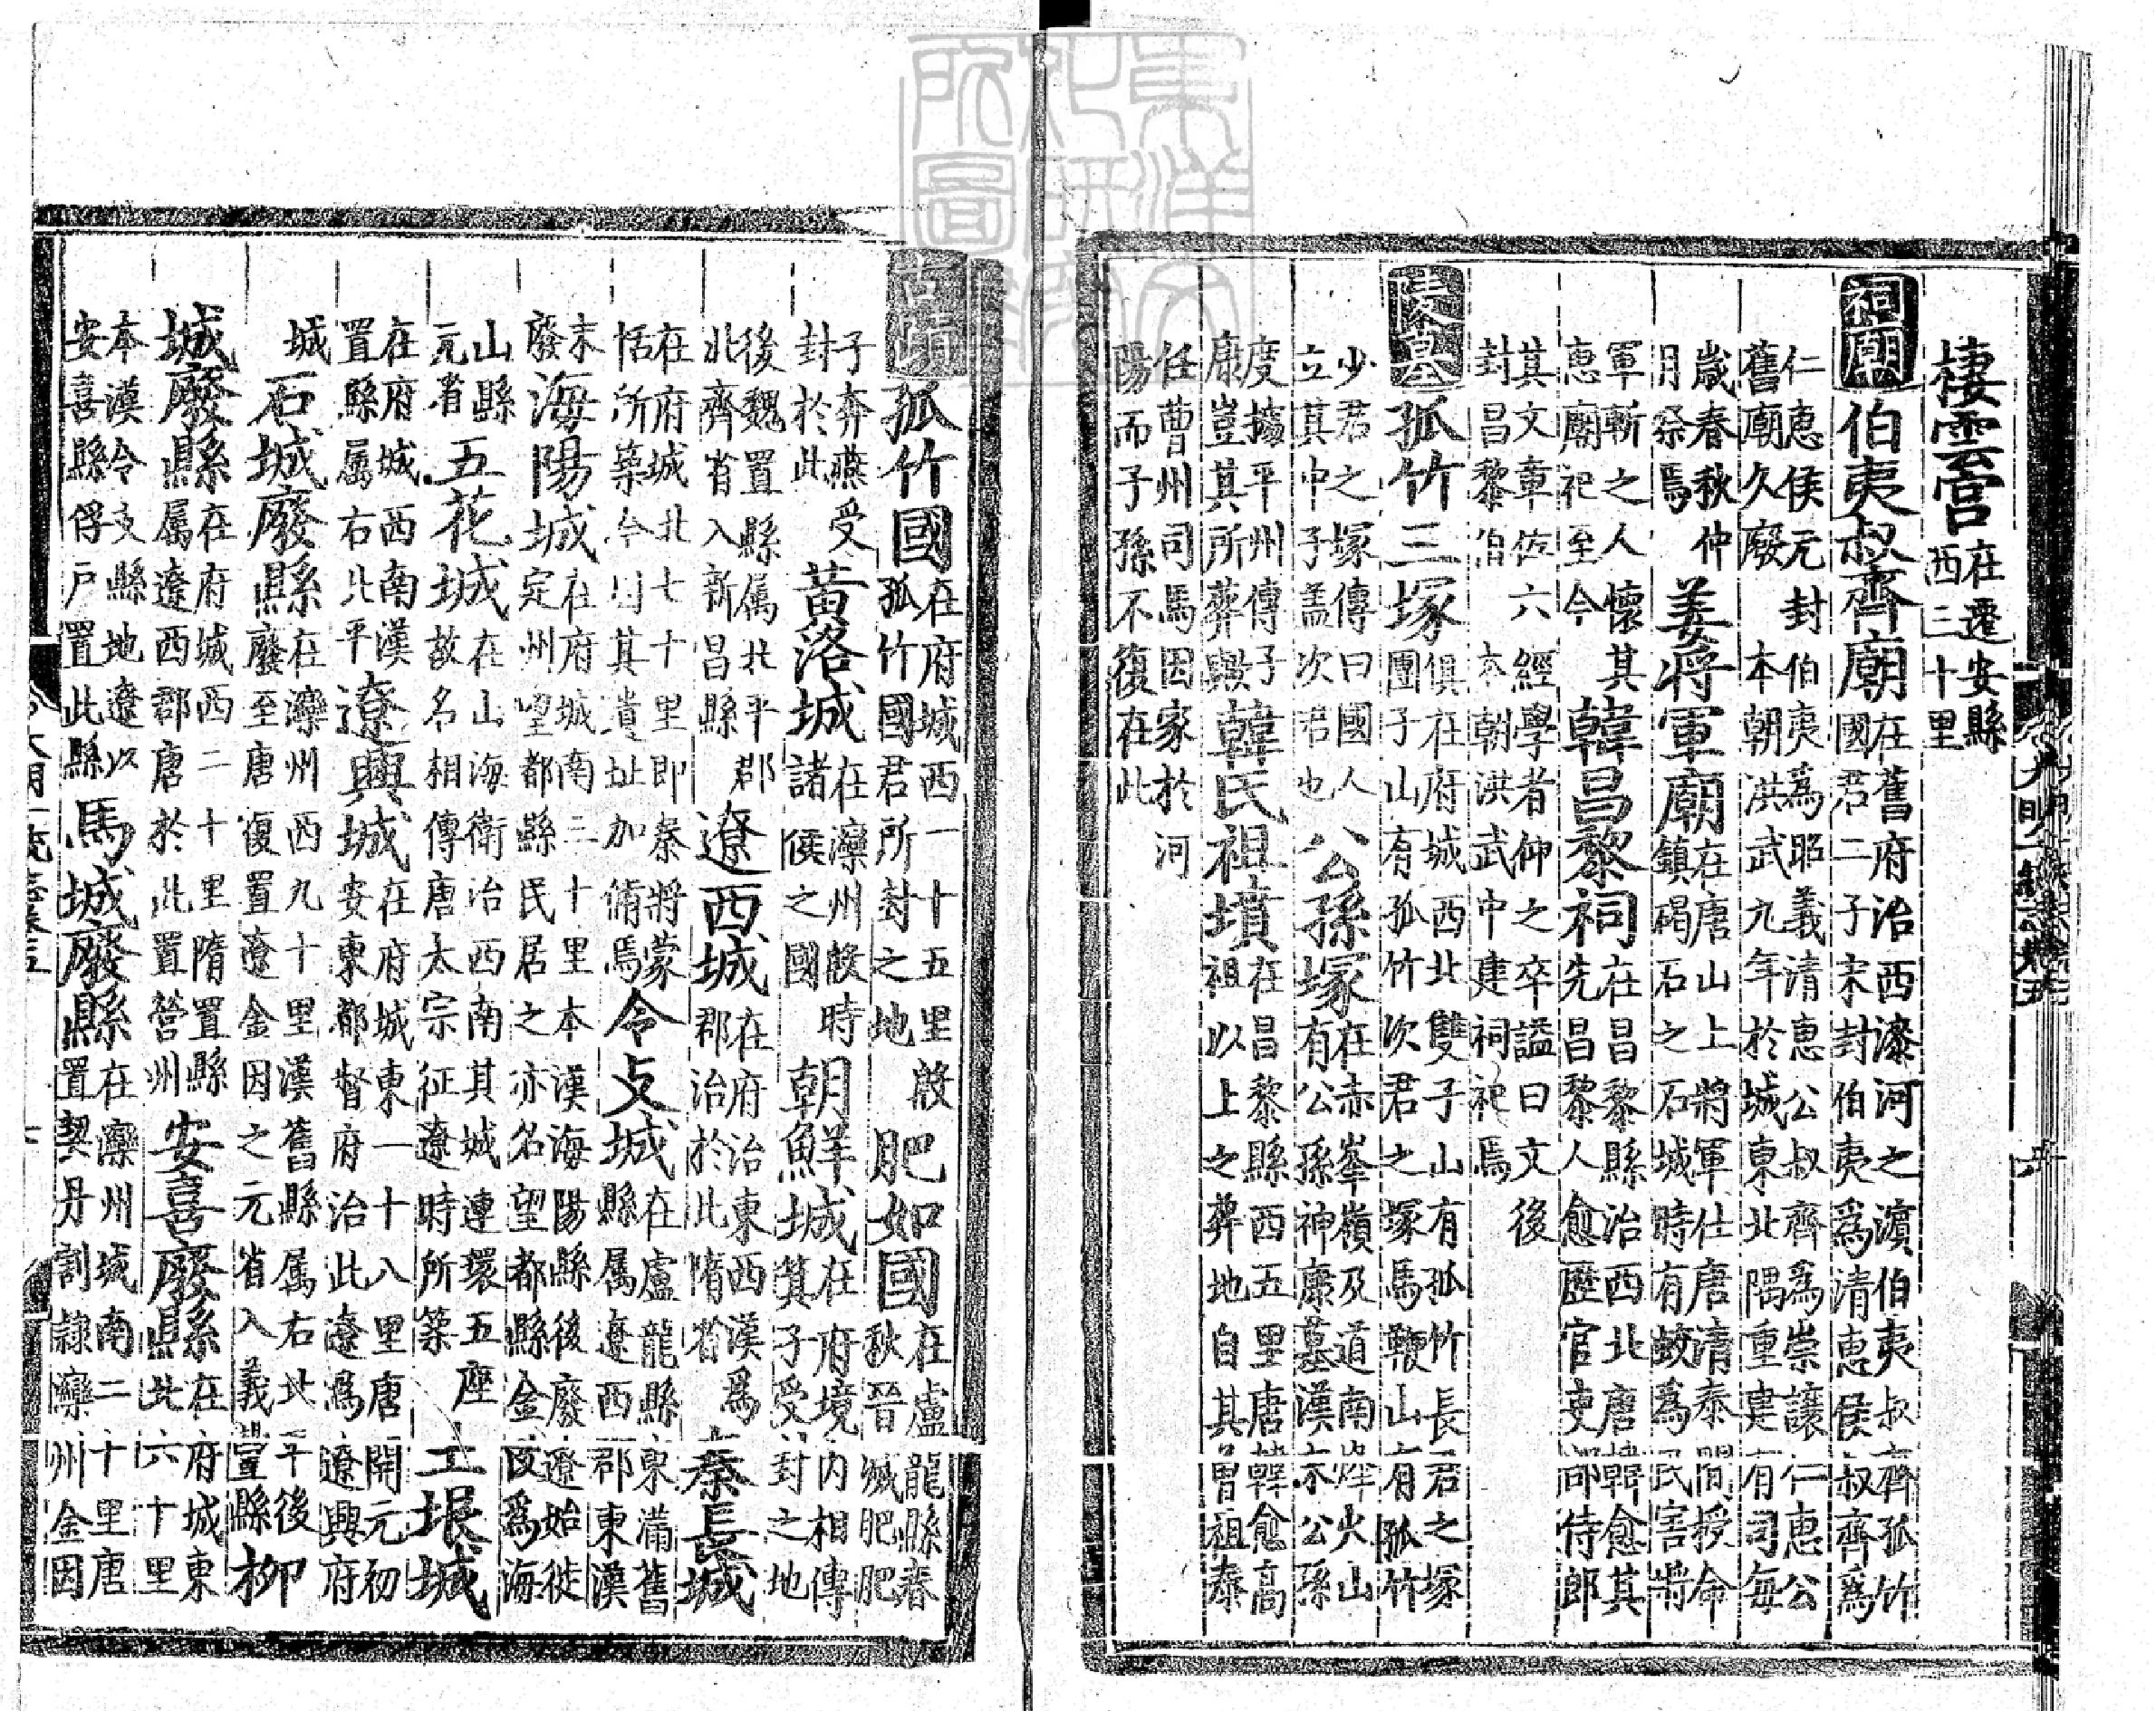 棲雲宮在遷安縣西三十里
祠廟 伯夷叔齊廟在舊府治西漆河之濵伯夷叔齊孤竹國君二子宋封伯夷爲清惠侯叔齊爲
仁惠侯元封伯夷爲昭義清惠公叔齊爲崇讓仁惠公舊廟久廢 本朝洪武九年於城東北隅重建有司每
歲春秋仲月祭焉 姜將軍廟在唐山上將軍仕唐清泰間授命鎮碣石之石城時有蛟爲民害將
軍斬之人懷其惠廟祀至今 韓昌黎祠在昌黎縣治西北唐韓愈其先昌黎人愈歷官吏部侍郎
其文章佐六經學者仰之卒諡曰文後封昌黎伯 本朝洪武中建祠祀焉
陵墓 孤竹三塚俱在府城西北雙子山有孤竹長君之塚團子山有孤竹次君之塚馬鞭山有孤竹
少君之塚傳曰國人立其中子盖次君也 公孫塚在赤峯嶺及道南烽火山有公孫神康墓漢末公孫
度據平州傳子康豈其所葬歟 韓氏祖墳在昌黎縣西五里唐韓愈高祖以上之葬地自其曾祖泰
任曹州司馬因家於河陽而子孫不復在此
古蹟 孤竹國在府城西一十五里殷孤竹國君所封之地 肥如國在盧龍縣春秋晉滅肥肥
子奔燕受封於此 黃洛城在灤州殷時諸侯之國 朝鮮城在府境内相傳箕子受封之地
後魏置縣屬北平郡北齊省入新昌縣 遼西城在府治東西漢爲郡治於此隋省 秦長城
在府城北七十里即秦將蒙恬所築今因其遺址加脩焉 令支城在盧龍縣東滿舊縣屬遼西郡東漢
末廢 海陽城在府城南三十里本漢海陽縣後廢遼始徙定州望都縣民居之亦名望都縣金改爲海
山縣元省 五花城在山海衛治西南其城連環五座故名相傳唐太宗征遼時所築 土垠城
在府城西南漢置縣属右北平 遼興城在府城東一十八里唐開元初安東都督府治此遼爲遼興府
城 石城廢縣在灤州西九十里漢舊縣属右北平後廢至唐復置遼金因之元省入義豐縣 柳
城廢縣在府城西二十里隋置縣属遼西郡唐於此置營州 安喜廢縣在府城東北六十里
本漢令支縣地遼以安喜縣俘戶置此縣 馬城廢縣在灤州城南二十里唐置契丹割隸灤州金因
大明一統志卷五